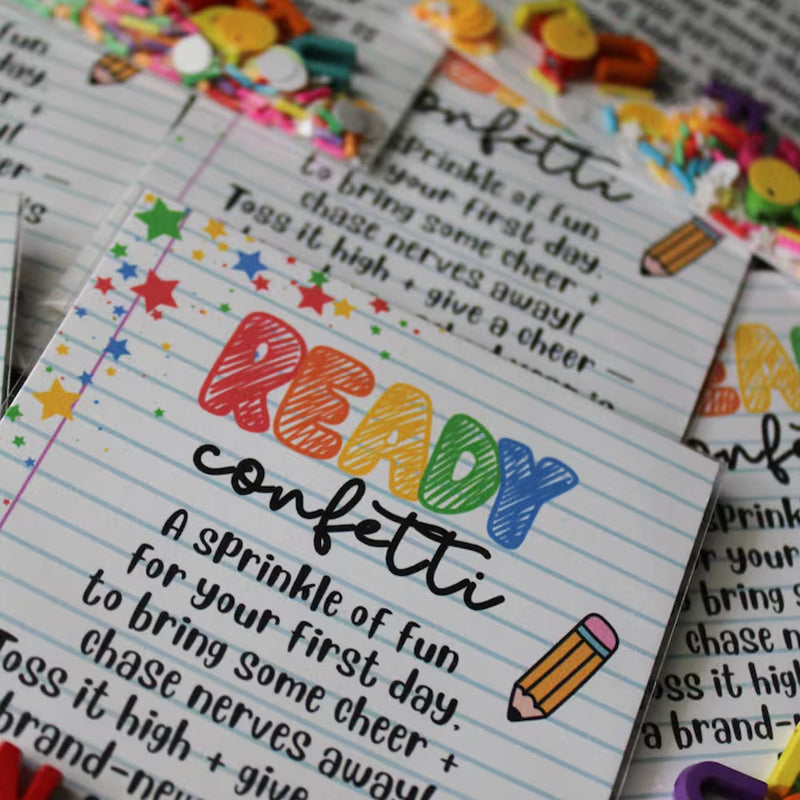 fun
day.
r +
y!
er —
's
confetti
sprinkle of fun
your first day,
to bring some cheer +
chase nerves away!
Toss it high + give a cheer —
READY
confetti
A sprinkle of fun
for your first day,
to bring some cheer +
chase nerves away!
Toss it high + give
brand-new
EA
sprink
r your
bring s
chase n
oss it high
a brand-n